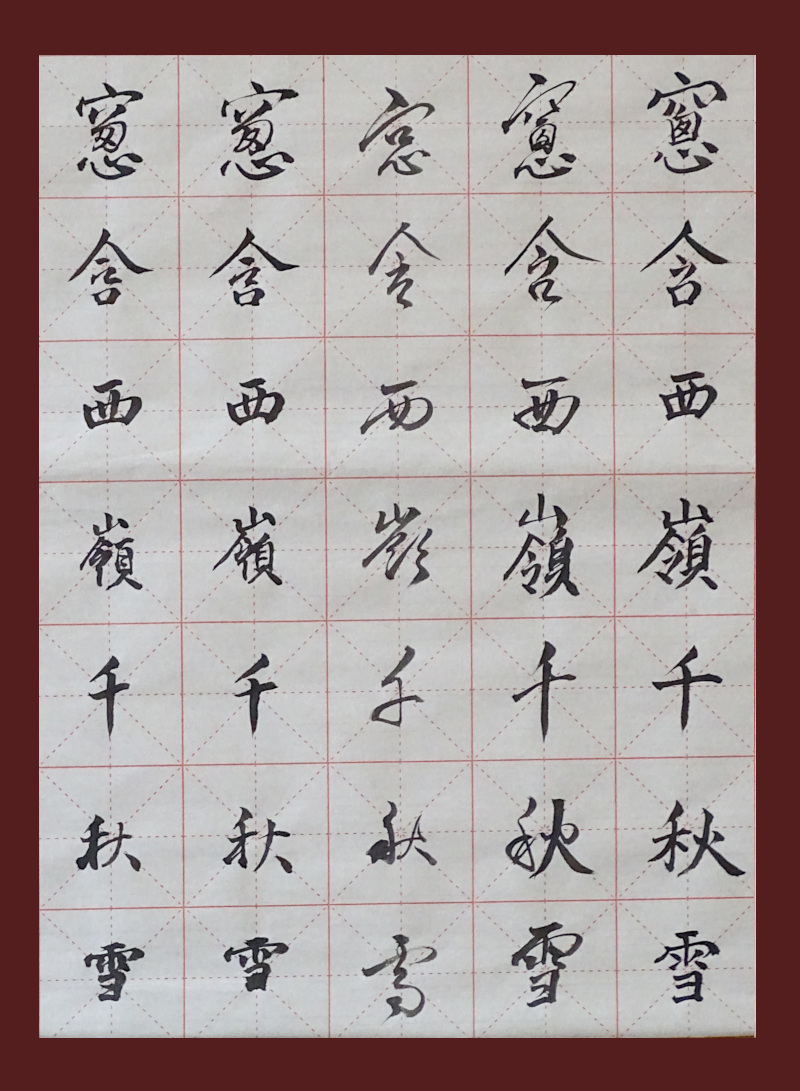 窻含西嶺千秋雪
窻含西嶺千秋雪
窓含西嶺千秋雪
窻含西嶺千秋雪
窻含西嶺千秋雪